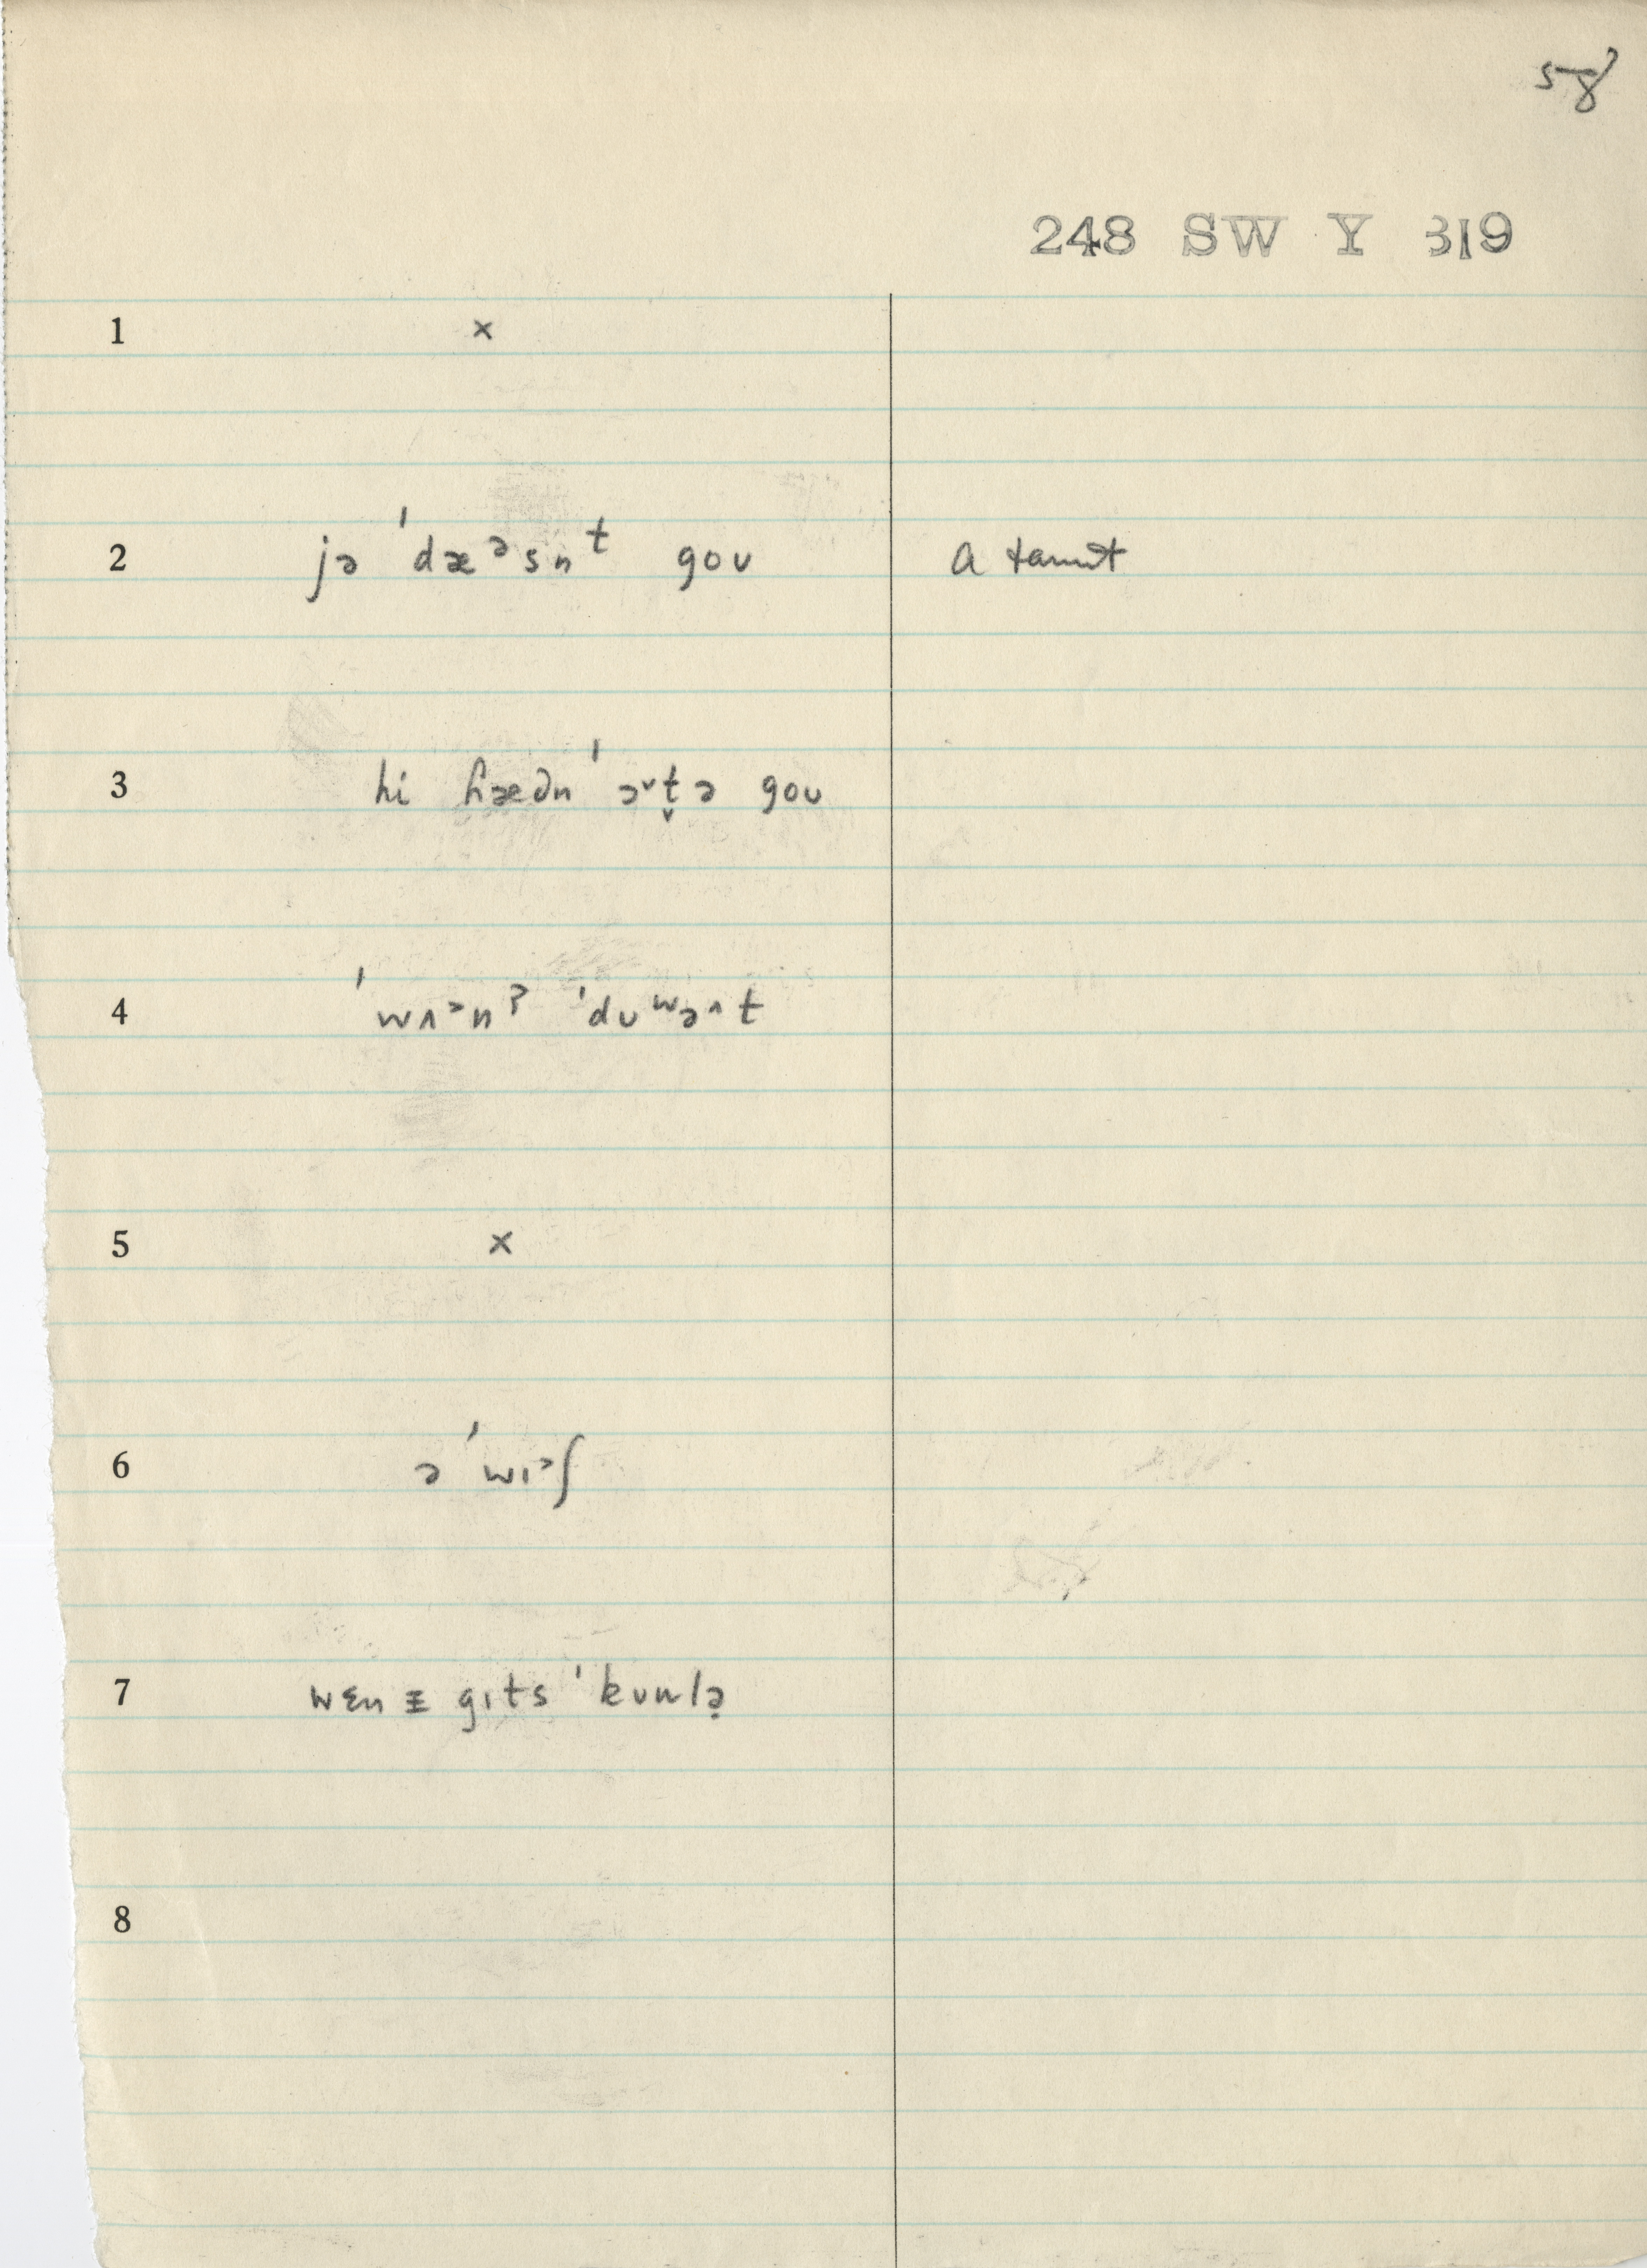 58
248 SW Y 319
1 ×
2 jə ˈdæᵊsnᵗ goʊ a taunt
3 hi ɦæდn ˈə˅t̬ə goʊ
4 ˈwʌᵊnˀ ˈdʊʷə^t
5 ×
6 ə ˈwɪᵊʃ
7 wɛn ɪ gɪts ˈkʊnlə̣
8